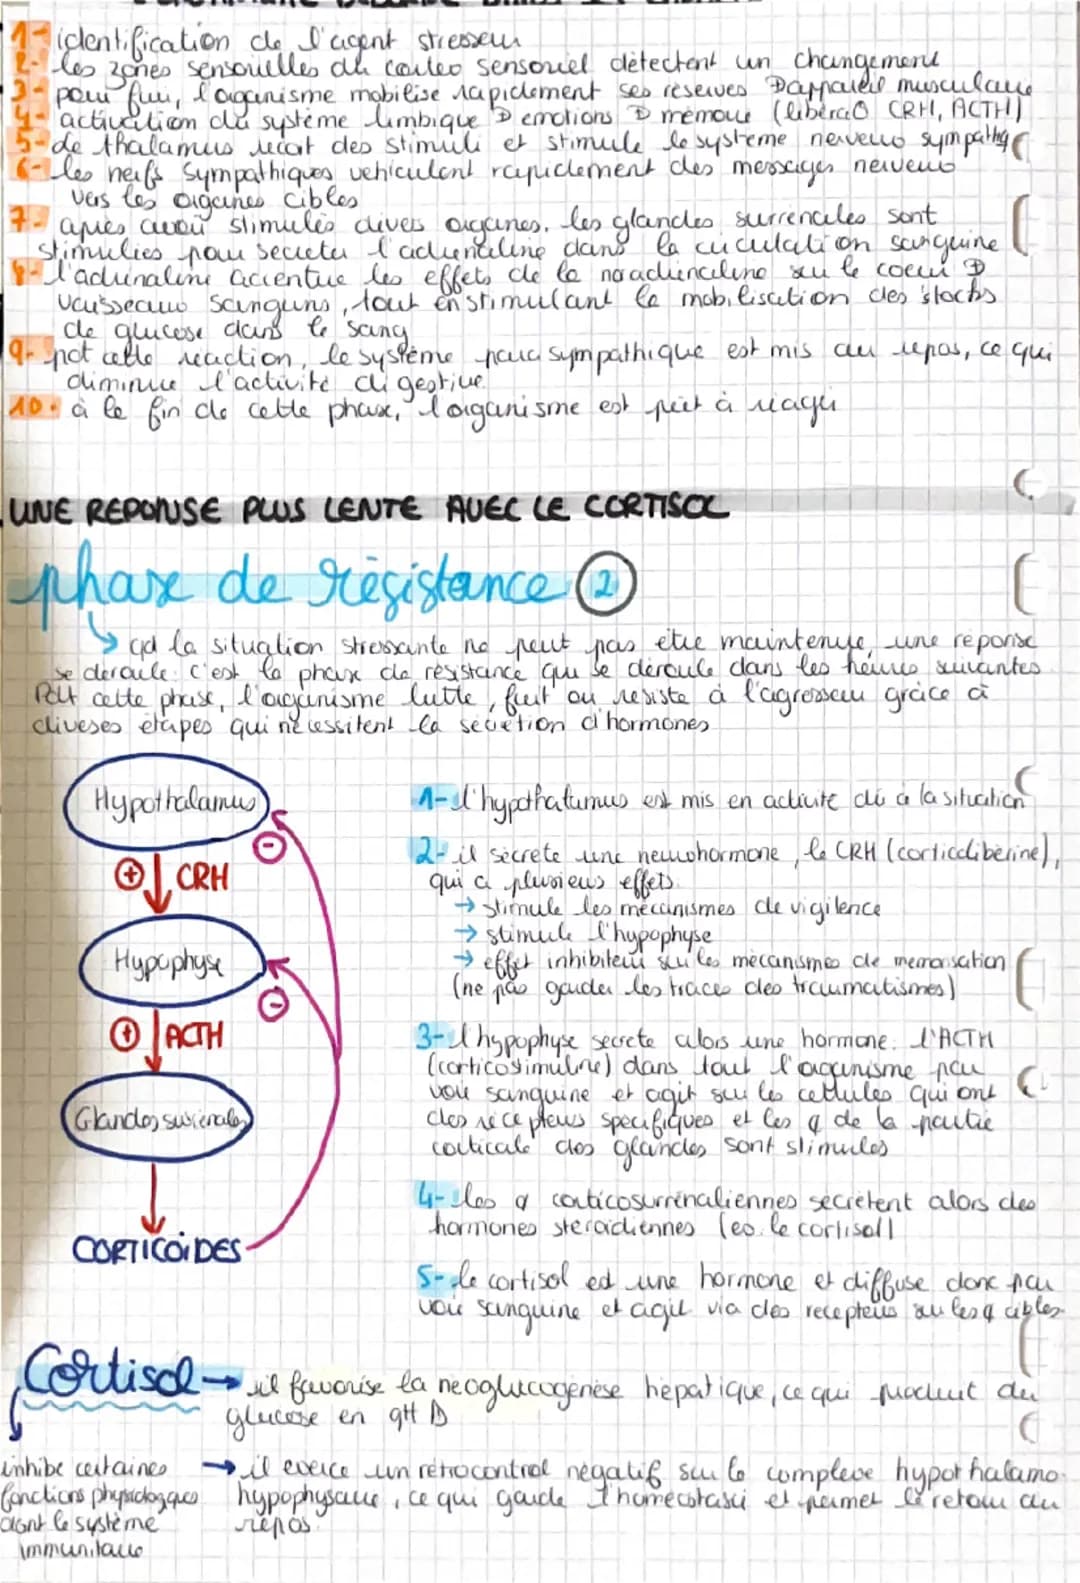 1- identification de l'agent stresseur
2- les zones sensorielles du cortex sensoriel détectent un changement
3- pour fuir, l'organisme mobilise rapidement ses réserves appareil musculaire
4- activation du système limbique émotions mémoire (libèrat° CRH, ACTH)
5- de thalamus recoit des stimuli et stimule le système nerveux sympathq
6- les nerfs sympathiques vehiculent rapidement des messages nerveux
vers les organes cibles
7- après avoir stimulés divers organes, les glandes surrénales sont
stimulées pour secreter l'adrénaline dans la circulation sanguine
8- l'adrénaline accentue les effets de la noadrénaline sur le coeur
vaisseaux sanguins, tout en stimulant la mobilisation des stocks
de glucose dans le sang
9- pdt cette réaction, le système parasympathique est mis au repos, ce qui
diminue l'activité digestive
10- à le fin de cette phase, l'organisme est prêt à réagir
UNE REPONSE PLUS LENTE AVEC LE CORTISOL
phase de résistance 2
qd la situation stressante ne peut pas être maintenue, une réponse
se deroule: c'est la phase de résistance qui se déroule dans les heures suivantes
Pdt cette phase, l'organisme lutte, fuit ou resiste à l'agresseur grâce à
diverses étapes qui nécessitent la sécrétion d'hormones
Hypothalamus
+ CRH
-
Hypophyse
-
+ ACTH
Glandes surrénales
CORTICOÏDES
1- l'hypothalamus est mis en activité dû à la situation
2- il sécrète une neurohormone, le CRH (corticolibérine),
qui a plusieurs effets:
→ stimule les mécanismes de vigilence
→ stimule l'hypophyse
→ effet inhibiteur sur les mécanismes de memorisation
(ne pas garder les traces des traumatismes)
3- l'hypophyse secrete alors une hormone: l'ACTH
(corticostimuline) dans tout l'organisme par
voie sanguine et agit sur les cellules qui ont
des récepteurs spécifiques et les ¢ de la partie
corticale des glandes sont stimulés
4- les ¢ corticosurrénaliennes secrètent alors des
hormones steroidiennes (ex: le cortisol)
5- le cortisol est une hormone et diffuse donc par
voie sanguine et agit via des recepteurs sur les ¢ cibles
Cortisol → il favorise la neoglucogénèse hépatique, ce qui produit du
glucose en qtt
inhibe certaines
fonctions physiologiques
dont le système
immunitaire
→ il exerce un rétrocontrol négatif sur le complexe hypothalamo-
hypophysaire, ce qui garde l'homéostasie et permet le retour au
repos